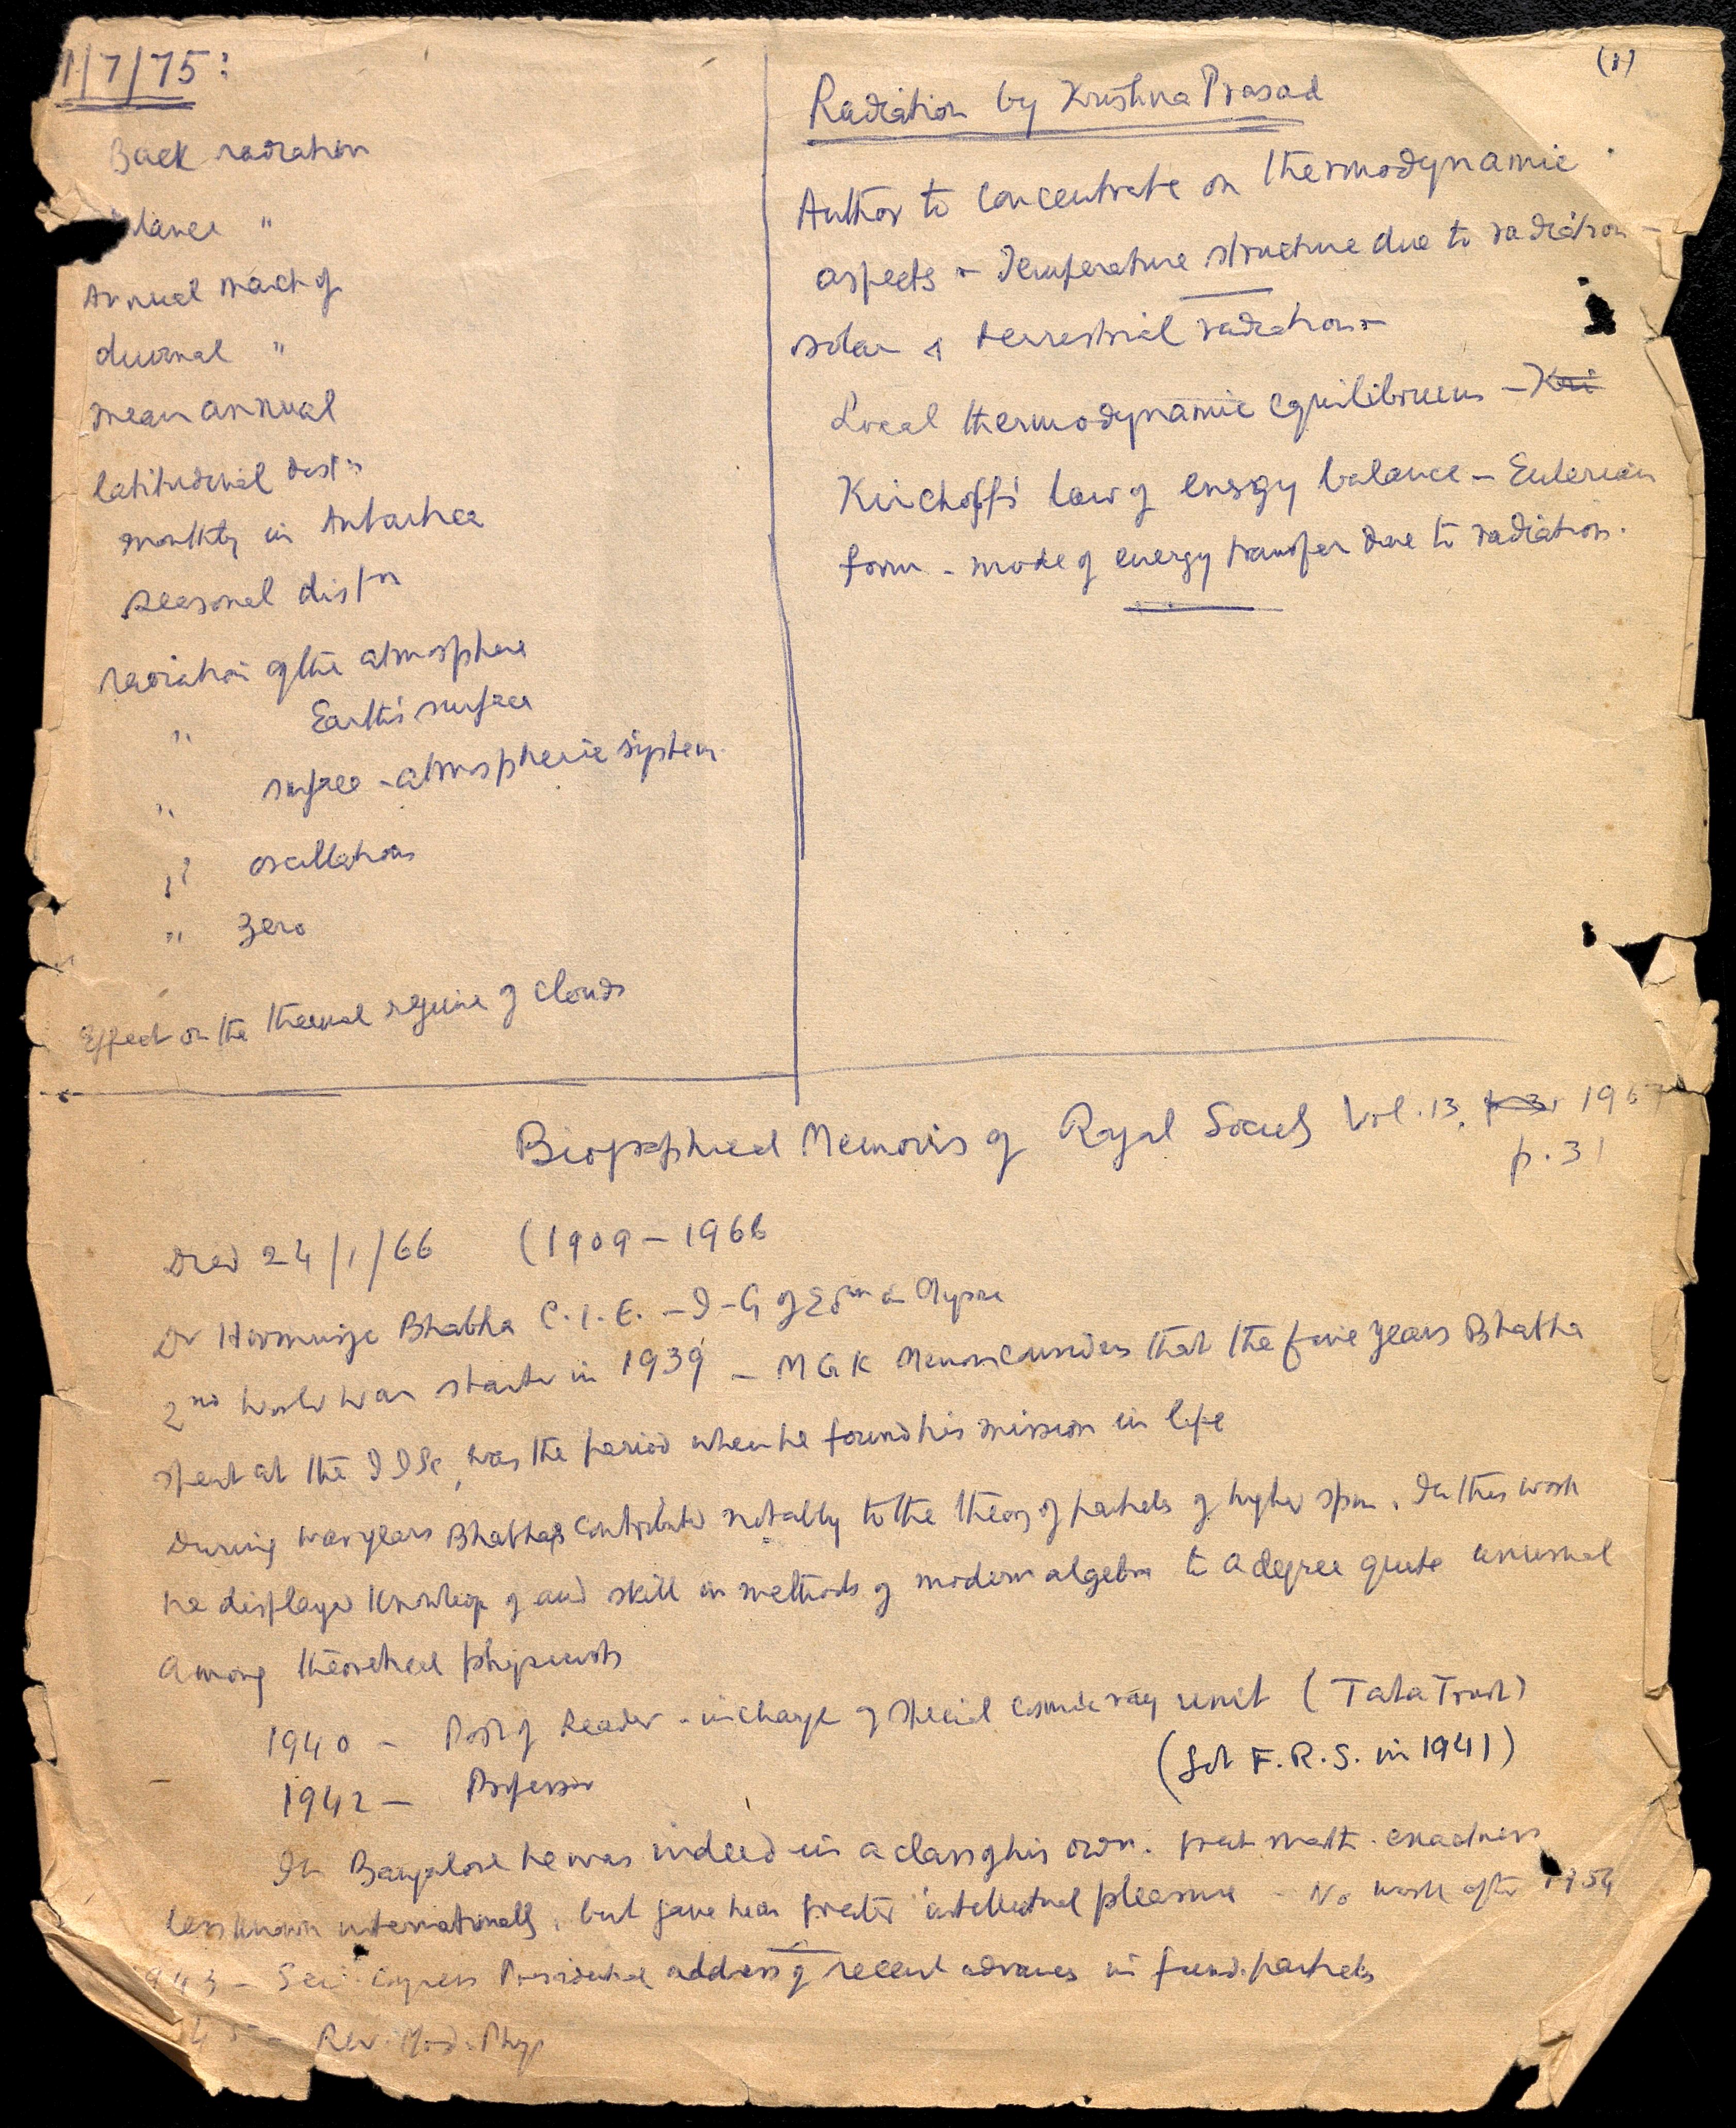 1/7/75:
Back radiation
lance "
Annual march of
diurnal "
mean annual
latitudinal distn
monthly in Antartica
seasonal distn
radiation of the atmosphere
" Earth's surface
" surface - atmospheric system
" oscillations
" zero
Effect on the thermal regime of clouds
(1)
Radiation by Krishna Prasad
Author to concentrate on thermodynamic
aspects - Temperature structure due to radiation -
solar & terrestrial radiation -
Local thermodynamic equilibrium - Kri
Kirchoff's law of energy balance - Eulerian
form - mode of energy transfer due to radiation.
Biographical Memoirs of Royal Society Vol. 13, 1967
p. 31
Died 24/1/66 (1909 - 1966
Dr Hormusje Bhabha C.I.E. - I-G of Edn in Mysore
2nd World War started in 1939 - MGK Menon considers that the five years Bhabha
spent at the IISc, was the period when he found his mission in life
During war years Bhabha contributed notably to the theory of particles of higher spin. In this work
he displayed knowledge of and skill in methods of modern algebra to a degree quite unusual
among theoretical physicists
1940 - Post of Reader - incharge of special cosmic ray unit (Tata Trust)
1942 - Professor (Got F.R.S. in 1941)
In Bangalore he was indeed in a class of his own. great math. exactness
less known internationally, but gave him greater intellectual pleasure - No work after 1954
943 - Sci. Congress Presidential address of recent advances in fund. particles
45 - Rev. Mod. Phys